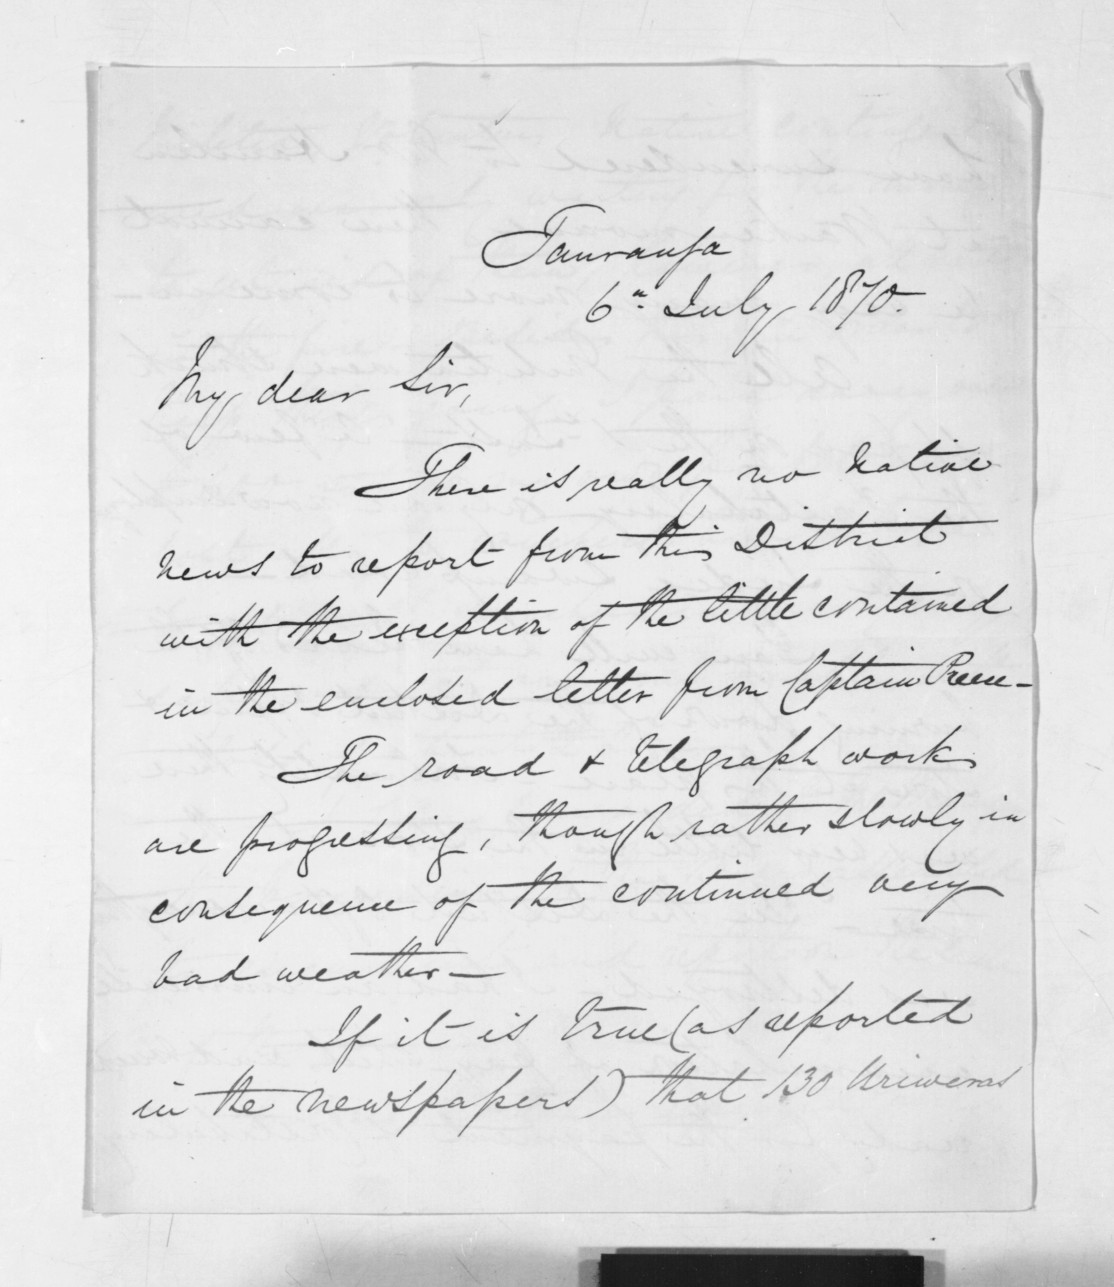 Tauranga
6th July 1870.
My dear Sir,
There is really no native
news to report from this District
with the exception of the little contained
in the enclosed letter from Captain Preece—
The road & telegraph work
are progressing, though rather slowly in
consequence of the continued very
bad weather—
If it is true (as reported
in the newspapers) that 130 Uriweras